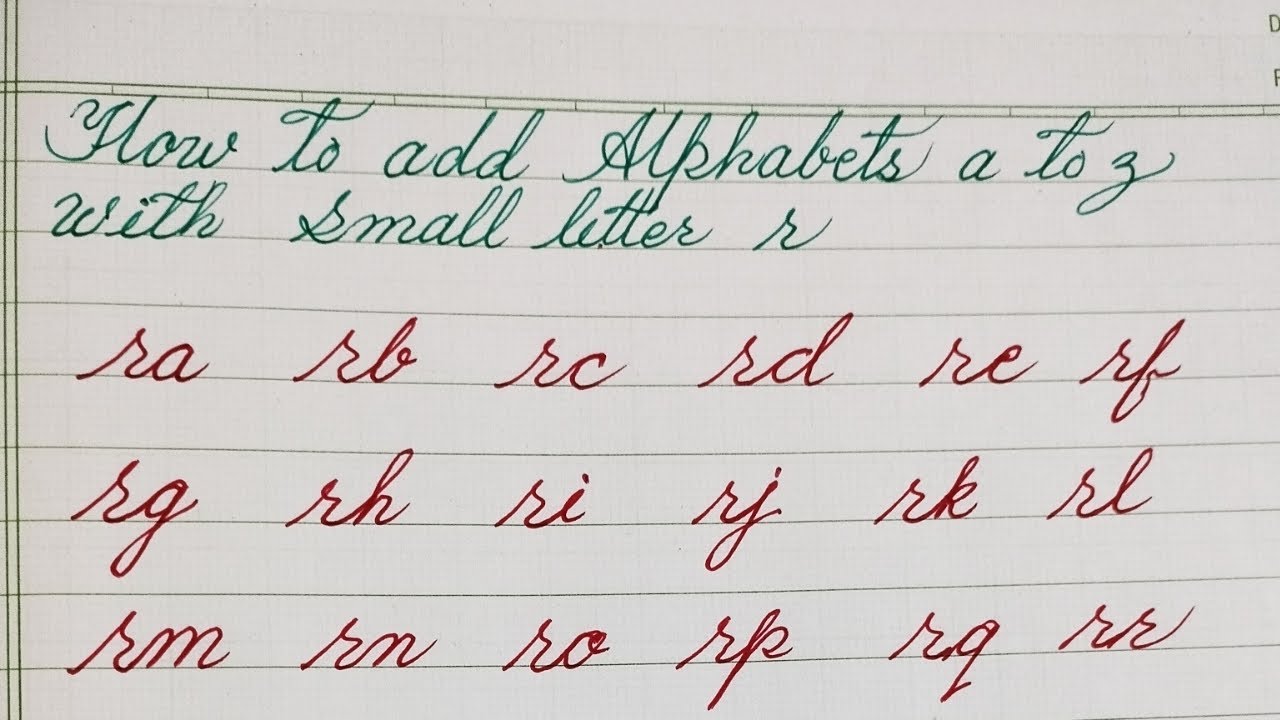 How to add Alphabets a to z
with small letter r
ra rb rc rd re rf
rg rh ri rj rk rl
rm rn ro rp rq rr